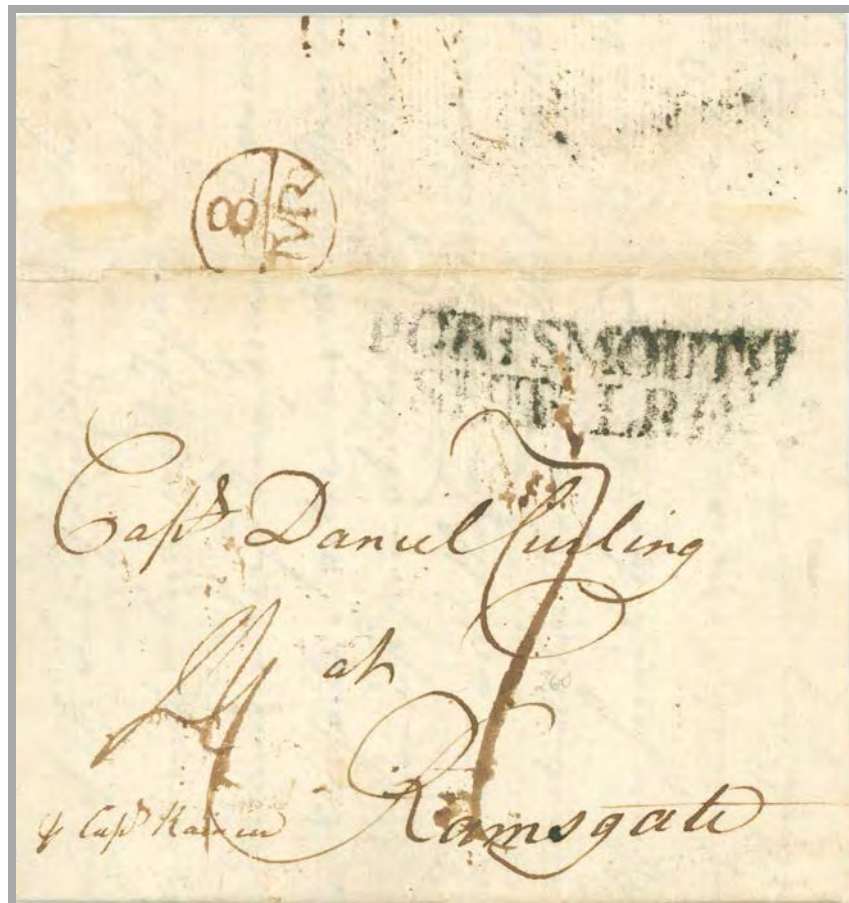 8
MR
PORTSMOUTH
SHIP LRE
Capt Daniel Curling
at
260
Ramsgate
Capt